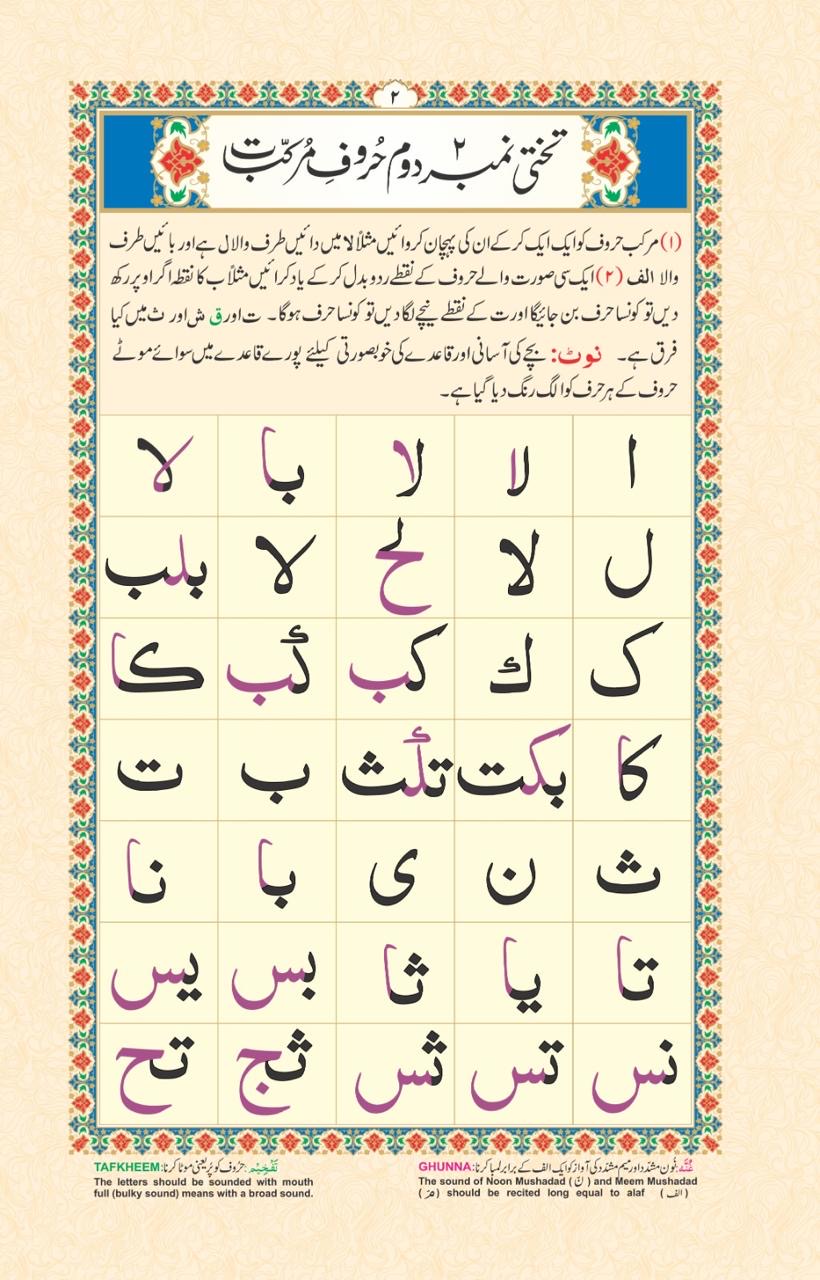 ۲
تختی نمبر ۲ دوم حُروفِ مُرکبّات
(۱) مرکب حروف کو ایک ایک کر کے ان کی پہچان کروائیں مثلاً لا میں دائیں طرف والا ل ہے اور بائیں طرف
والا الف (۲) ایک سی صورت والے حروف کے نقطے ردو بدل کر کے یاد کرائیں مثلاً ب کا نقطہ اگر اوپر رکھ
دیں تو کونسا حرف بن جائیگا اور ت کے نقطے نیچے لگا دیں تو کونسا حرف ہوگا۔ ت اور ق ش اور ث میں کیا
فرق ہے۔ نوٹ: بچے کی آسانی اور قاعدے کی خوبصورتی کیلئے پورے قاعدے میں سوائے موٹے
حروف کے ہر حرف کو الگ رنگ دیا گیا ہے۔
ا لا لا با لا
ل لا لح لا بلب
ک ك كب كب كا
كا بكت تكث ب ت
ث ن ى با نا
تا يا ثا بس يس
نس تس ثس ثج تح
غُنَّه: نُون مشدّد اور میم مشدّد کی آواز کو ایک الف کے برابر لمبا کرنا: GHUNNA
The sound of Noon Mushadad (نّ) and Meem Mushadad
(مّ) should be recited long equal to alaf (الف)
تَفْخِيْم: حُرُوف کو پُر یعنی موٹا کرنا: TAFKHEEM
The letters should be sounded with mouth
full (bulky sound) means with a broad sound.